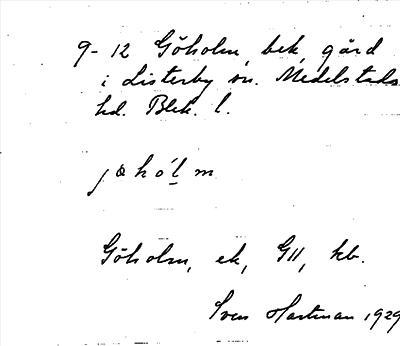 9-12 Göholm, bek, gård
i Listerby sn. Medelstads
hd. Blek. l.
jøhólm
Göholm, ek, GII, kb.
Sven Hartman 1929